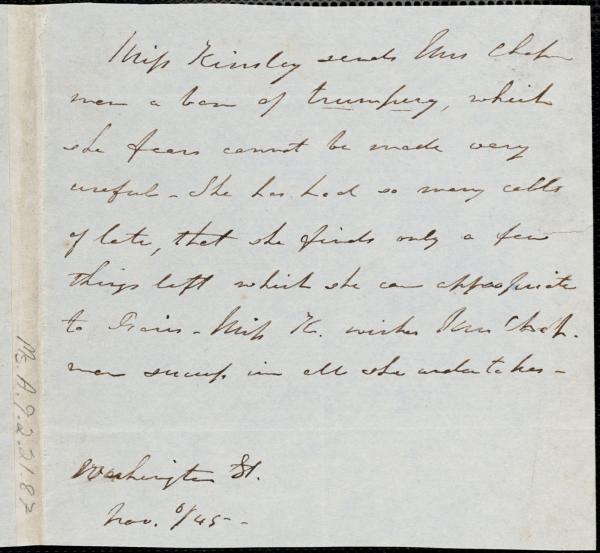 Miss Kinsley sends Mrs Chap
man a box of trumpery, which
she fears cannot be made very
useful - She has had so many calls
of late, that she finds only a few
things left which she can appropriate
to Fairs - Miss K. wishes Mrs Chap-
man success in all she undertakes -
Washington St.
Nov. 6/45 -
Ms. A.9.2.21.87